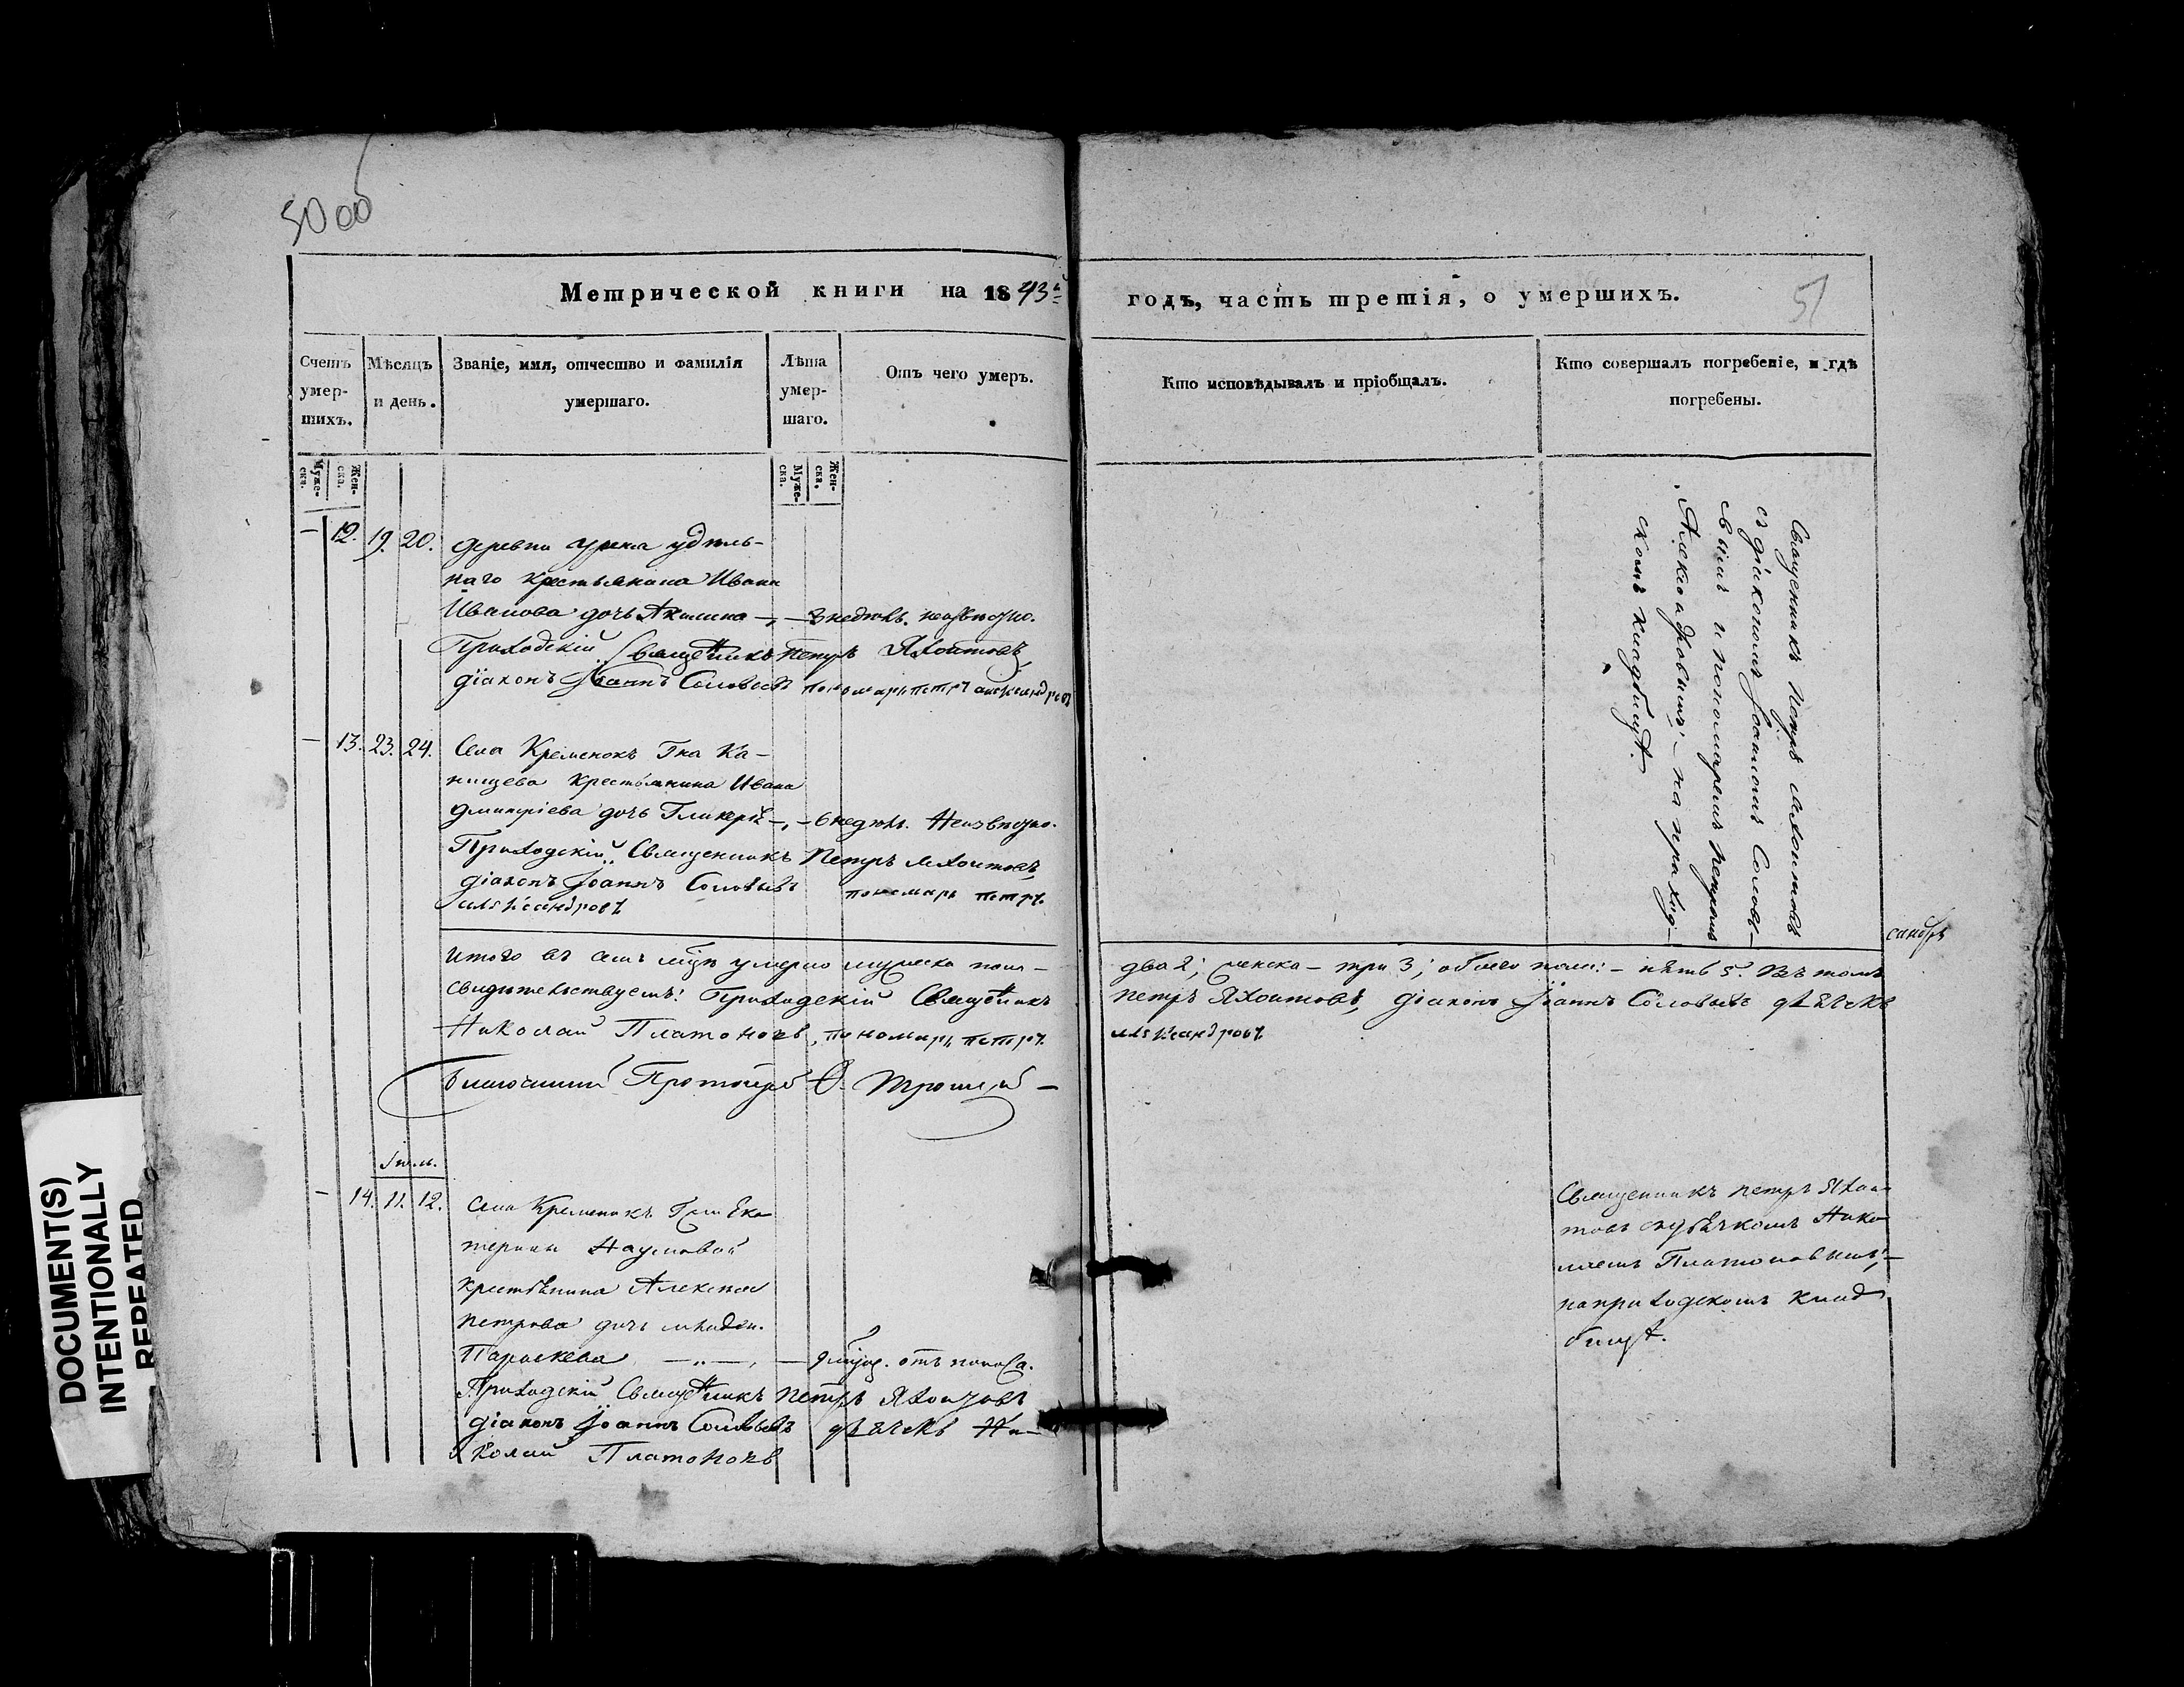 50 об
Метрической книги на 1843й
годъ, часть третія, о умершихъ.
51
Счетъ умер-шихъ.
Мѣсяцъ и день.
Званіе, имя, отчество и фамилія умершаго.
Лѣта умер-шаго.
Отъ чего умеръ.
Кто исповѣдывалъ и пріобщалъ.
Кто совершалъ погребеніе, и гдѣ погребены.
Муже-ска.
Жен-ска.
Муже-ска.
Жен-ска.
— 12. 19. 20. деревни удѣль-
наго крестьянина Ивана
Иванова дочь Акилина —, — 3 недѣль. неизвѣстно.
Приходскій Священникъ Петръ Яхонтовъ,
діаконъ Іоаннъ Соловьевъ пономарь петръ александровъ
— 13. 23. 24. Села Кременокъ Гна Ка-
нищева крестьянина Ивана
Дмитріева дочь Гликерія —, — 6 недѣль. Неизвѣстно.
Приходскій Священникъ Петръ Яхонтовъ,
діаконъ Іоаннъ Соловьевъ пономарь петръ
александровъ
Священникъ Петръ Яхонтовъ
съ діакономъ Іоанномъ Соловье-
вымъ и пономаремъ Петромъ
Александровымъ; — на приход-
скомъ кладбищѣ.
Итого въ семъ мцѣ умерло мужеска пола — два 2; женска — три 3; обоего пола: — пять 5. Въ томъ
свидѣтельствуемъ: Приходскій Священникъ Петръ Яхонтовъ, діаконъ Іоаннъ Соловьевъ дьячекъ
Николай Платоновъ, пономарь петръ александровъ
Благочинный Протоіерей
Іюль.
— 14. 11. 12. Села Кременокъ Гжи Ека-
терины Наумовой
крестьянина Алексея
Петрова дочь младен.
Параскева —„—, — 9 мцов. отъ поноса.
Приходскій Священникъ Петръ Яхонтовъ
діаконъ Іоаннъ Соловьевъ дьячекъ Ни-
колай Платоновъ
Священникъ Петръ Яхон-
товъ съ дьячкомъ Нико-
лаемъ Платоновымъ; —
на приходскомъ клад-
бищѣ.
DOCUMENT(S)
INTENTIONALLY
REPEATED